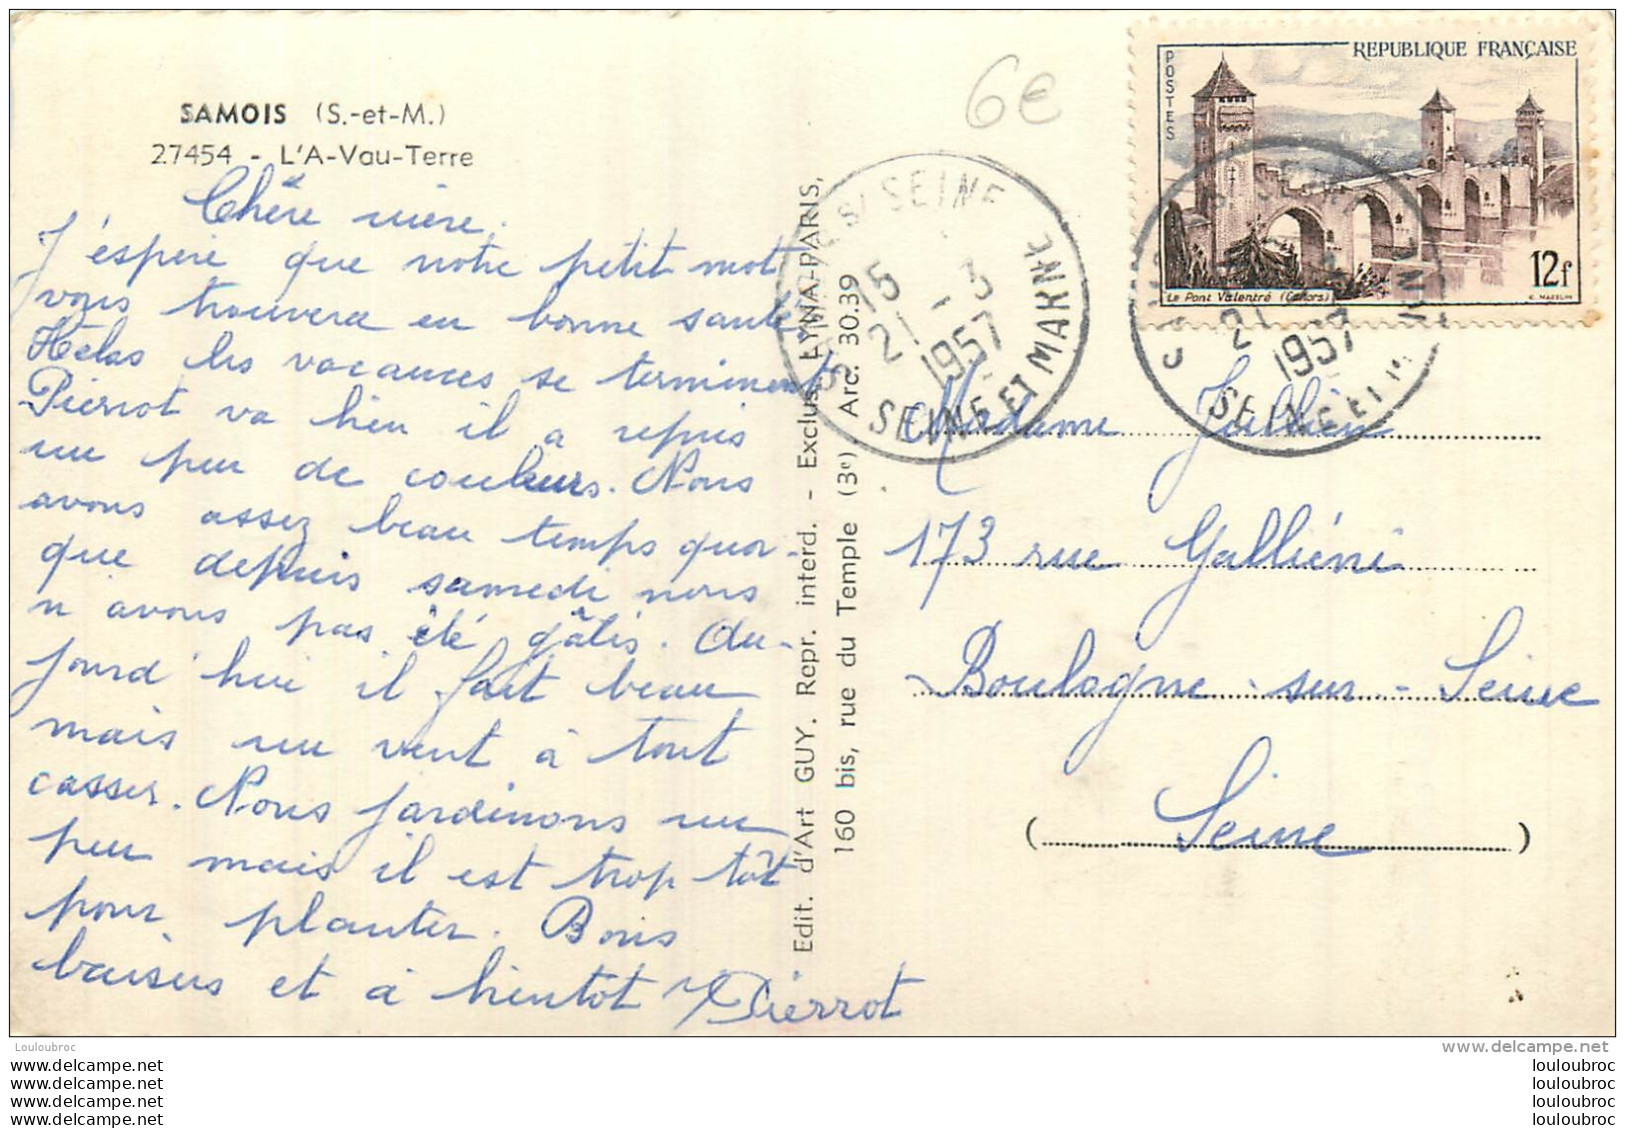 SAMOIS (S.-et-M.)
27454 - L'A-Vau-Terre
Chère mère.
J'espère que notre petit mot
vous trouvera en bonne santé.
Hélas les vacances se terminent
Pierrot va bien il a repris
un peu de couleurs. Nous
avons assez beau temps quoi-
que depuis samedi nous
n'avons pas été gâtés. Au-
jourd'hui il fait beau
mais un vent à tout
casser. Nous jardinons un
peu mais il est trop tôt
pour planter. Bons
baisers et à bientôt Pierrot
Edit. d'Art GUY. Repr. interd. - Exclus. LYNA-PARIS,
160 bis, rue du Temple (3e) Arc. 30.39
6€
S/ SEINE
15
21 - 3
1957
SEINE ET MARNE
REPUBLIQUE FRANÇAISE
POSTES
12f
Le Pont Valentré (Cahors)
21
1957
SEINE ET M
Madame Jullien
173 rue Galliéni
Boulogne-sur-Seine
(Seine)
Louloubroc
www.delcampe.net
www.delcampe.net louloubroc
www.delcampe.net louloubroc
www.delcampe.net louloubroc
www.delcampe.net louloubroc